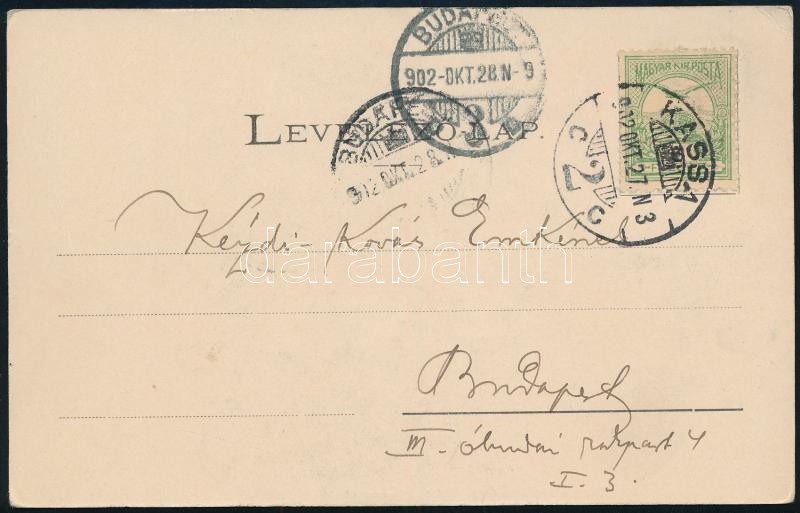 BUDAPEST
902-OKT.28.N-9
3
MAGYAR KIR. POSTA
LEVELEZŐ-LAP.
BUDAPEST
902 OKT. 28.
KASSA 1
902 OKT. 27. N 3
C 2 C
Kéydi-Kovás Emkének
darabanth
Budapest
III. óbudai rakpart 4
I. 3.